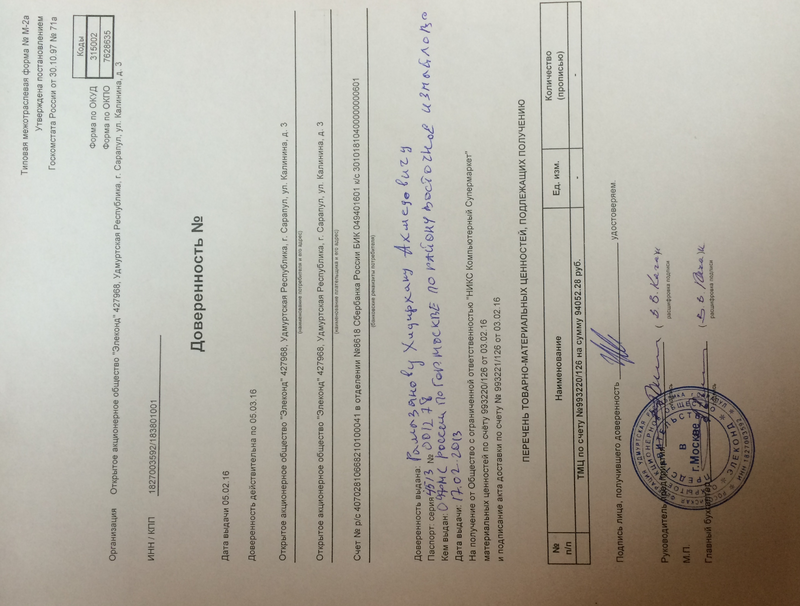 Типовая межотраслевая форма № М-2а
Утверждена постановлением
Госкомстата России от 30.10.97 № 71а
Коды
Форма по ОКУД 315002
Форма по ОКПО 7628635
Организация Открытое акционерное общество "Элеконд" 427968, Удмуртская Республика, г. Сарапул, ул. Калинина, д. 3
ИНН / КПП 1827003592/183801001
Доверенность №
Дата выдачи 05.02.16
Доверенность действительна по 05.03.16
Открытое акционерное общество "Элеконд" 427968, Удмуртская Республика, г. Сарапул, ул. Калинина, д. 3
(наименование потребителя и его адрес)
Открытое акционерное общество "Элеконд" 427968, Удмуртская Республика, г. Сарапул, ул. Калинина, д. 3
(наименование плательщика и его адрес)
Счет № р/с 40702810668210100041 в отделении №8618 Сбербанка России БИК 049401601 к/с 30101810400000000601
(банковские реквизиты потребителя)
Доверенность выдана: Рамазанову Хидирхану Ахмедовичу
Паспорт: серия 4513 № 001278
Кем выдан: ОУФМС России по гор Москве по району Восточное Измайлово
Дата выдачи: 17.02.2013
На получение от Общество с ограниченной ответственностью "НИКС Компьютерный Супермаркет"
материальных ценностей по счёту 993220/126 от 03.02.16
и подписание акта доставки по счёту № 993221/126 от 03.02.16
ПЕРЕЧЕНЬ ТОВАРНО-МАТЕРИАЛЬНЫХ ЦЕННОСТЕЙ, ПОДЛЕЖАЩИХ ПОЛУЧЕНИЮ
№ п/п Наименование Ед. изм. Количество (прописью)
ТМЦ по счету №993220/126 на сумму 94052.28 руб. - -
Подпись лица, получившего доверенность удостоверяем.
Руководитель
расшифровка подписи
М.П.
Главный бухгалтер
расшифровка подписи
В
г.Москве
ЭЛЕКОНД